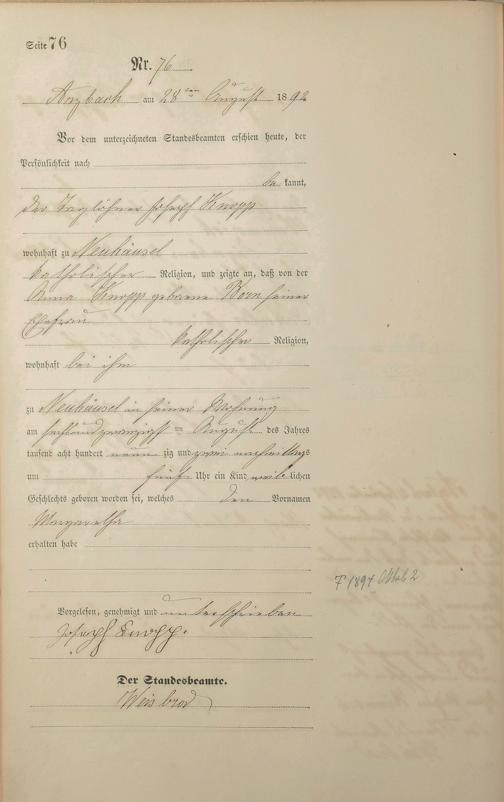 Seite 76
Nr. 76
Arzbach am 28ten August 1892
Vor dem unterzeichneten Standesbeamten erschien heute, der
Persönlichkeit nach
be kannt,
der Taglöhner Joseph Knopp
wohnhaft zu Neuhäusel
katholischer Religion, und zeigte an, daß von der
Anna Knopp geborene Born seiner
Ehefrau
katholischer Religion,
wohnhaft bei ihm
zu Neuhäusel in seiner Wohnung
am sechsundzwanzigst = August des Jahres
tausend acht hundert neun zig und zwei nachmittags
um fünf Uhr ein Kind weib lichen
Geschlechts geboren worden sei, welches den Vornamen
Margaretha
erhalten habe
F 1894 2
Vorgelesen, genehmigt und unterschrieben
Joseph Knopp.
Der Standesbeamte.
Weisbrod